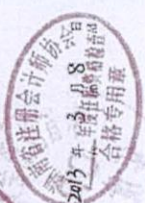 省注册会计师协会
2013年3月18日
年度任职资格检查
合格专用章